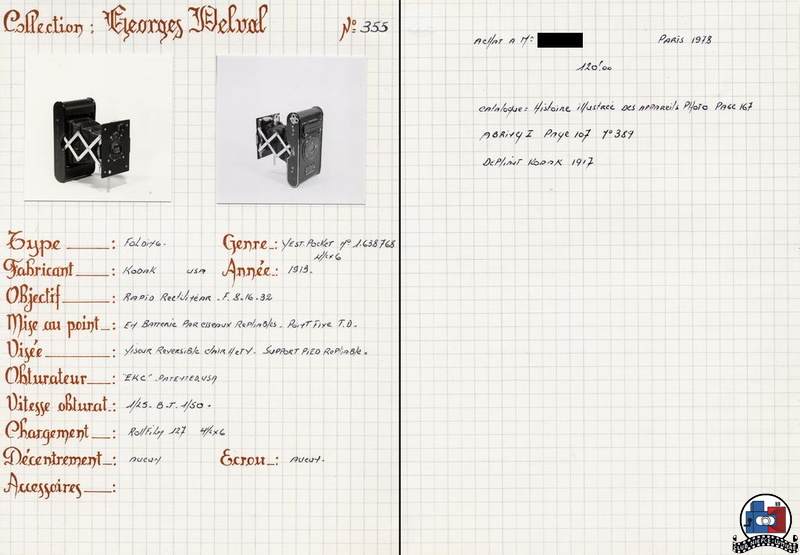 Collection : Georges Delval
N°: 355
Type : Folding.
Genre : Vest. Pocket n° 1.638768
4/6x6
Fabricant : Kodak USA
Année : 1913.
Objectif : Rapid Rectilinéar . F. 8.16.32
Mise au point : En Batterie Par Ciseaux Repliables. Point Fixe T.D.
Visée : Viseur Reversible Clair H et V. Support Pied Repliable.
Obturateur : "EKC". Patented. USA
Vitesse obturat. : 1/25. B.T. 1/50.
Chargement : Rollfilm 127
Décentrement : Aucun
Ecrou : Aucun.
Accessoires :
Achat A Mr:
Paris 1978
120F.00
Catalogue: Histoire illustrée Des Appareils Photo Page 167
Abring I Page 107 n° 389
Depliant Kodak 1917